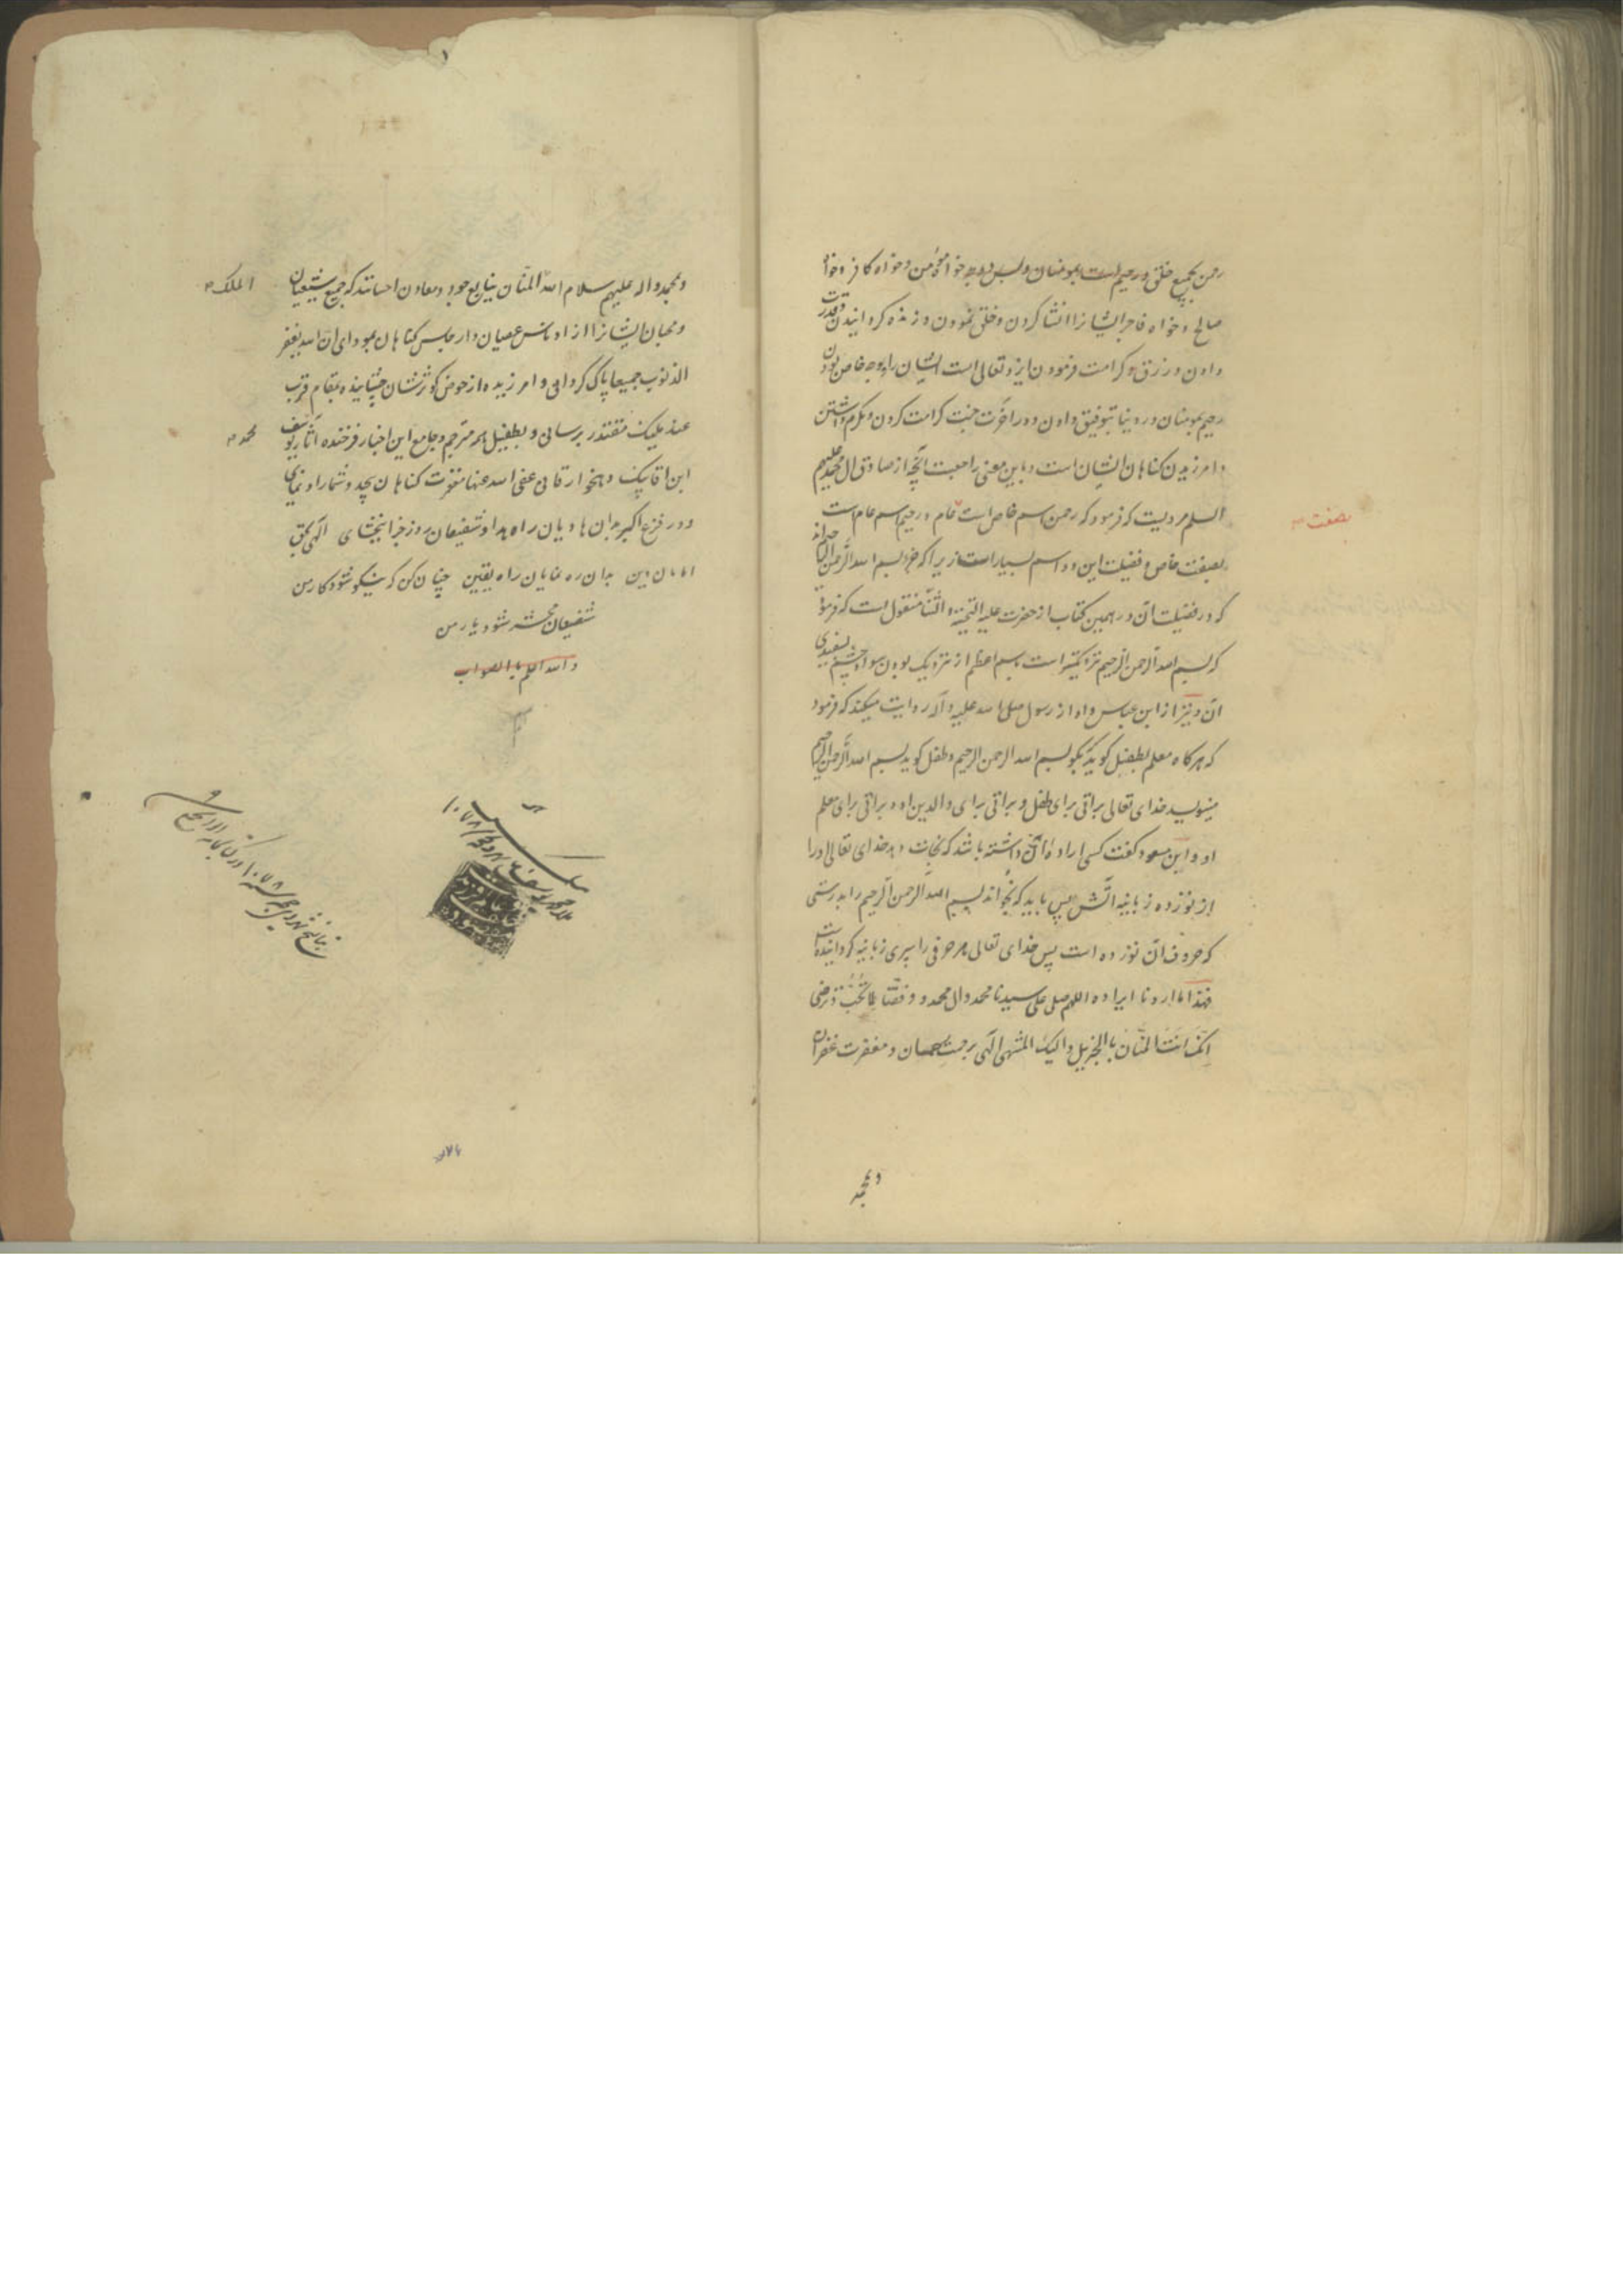 رحمن بجمیع خلق و رحیم است بمومنان و بس و وجه خواه مؤمن و خواه کافر و خواه
صالح و خواه فاجر ایشانرا انشا کردن و خلق نمودن و زنده کردانیدن و قدرت
دادن و رزق و کرامت فرمودن ایزد تعالی است ایشان را و وجه خاص بودن
رحیم بمومنان در دنیا بتوفیق دادن و در آخرت جنت کرامت کردن و مکرم داشتن
و امرزیدن کناهان ایشان است و باین معنی راجعست آنچه از صادق ال محمد علیهم
السلم مرویست که فرمود که رحمن اسم خاص است عام و رحیم اسم عام است
بصفت
بصفت خاص و فضیلت این دو اسم بسیار است زیرا که جزء بسم الله الرحمن الرحیم اند
که در فضیلت آن در همین کتاب از حضرت علیه التحیة و الثنا منقول است که فرمود
که بسم الله الرحمن الرحیم نزدیکتر است باسم اعظم از نزدیک بودن سواد چشم بسفیدی
آن و نیز از ابن عباس و او از رسول صلی الله علیه و آله روایت میکند که فرمود
که هرکاه معلم بطفل کوید که بکو بسم الله الرحمن الرحیم و طفل کوید بسم الله الرحمن الرحیم
مینویسد خدای تعالی براتی برای طفل و براتی برای والدین او و براتی برای معلم
او و ابن مسعود کفت کسی اراده آن داشته باشد که نجات دهد خدای تعالی او را
از نوزده زبانیه آتش پس باید که بخواند بسم الله الرحمن الرحیم را بدرستی
که حروف آن نوزده است پس خدای تعالی هر حرفی را سپری زبانیه کردانیده است
فهذا ما اردنا ایراده اللهم صل علی سیدنا محمد و ال محمد و وفقنا لما تحب و ترضی
انک انت المنان بالجزیل و الیک المشتهی الهی برحمت و مغفرت غفران
و بمحمد
و بمحمد و اله علیهم سلام الله المنان ینابیع جود و معادن احسانند که جمیع شیعیان
الملک
و محبان ایشانرا از ادناس عصیان و ارجاس کناهان بمودای ان الله یغفر
الذنوب جمیعا پاک کردانی و امرزیده از حوض کوثرشان چشانیده بمقام قرب
عند ملیک مقتدر برسانی و بطفیل همه مترجم و جامع این اخبار فرخنده آثار یوسف
محمد
ابن اقا بیک عفی الله عنها مغفرت کناهان بیحد و شمار او نمای
و در فزع اکبر بدان هادیان راه هدا و شفیعان روز جزا ببخشای الهی بحق
امامان دین بدان ره نمایان راه یقین چنان کن که نیکو شود کار من
شفیعان محشر شود یار من
و الله اعلم بالصواب
۱۰۷۸